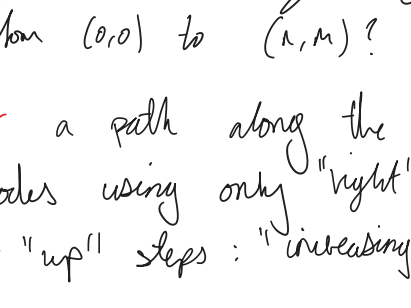 from (0,0) to (n,m)?
a path along the
odes using only "right"
"up" steps : "increasing